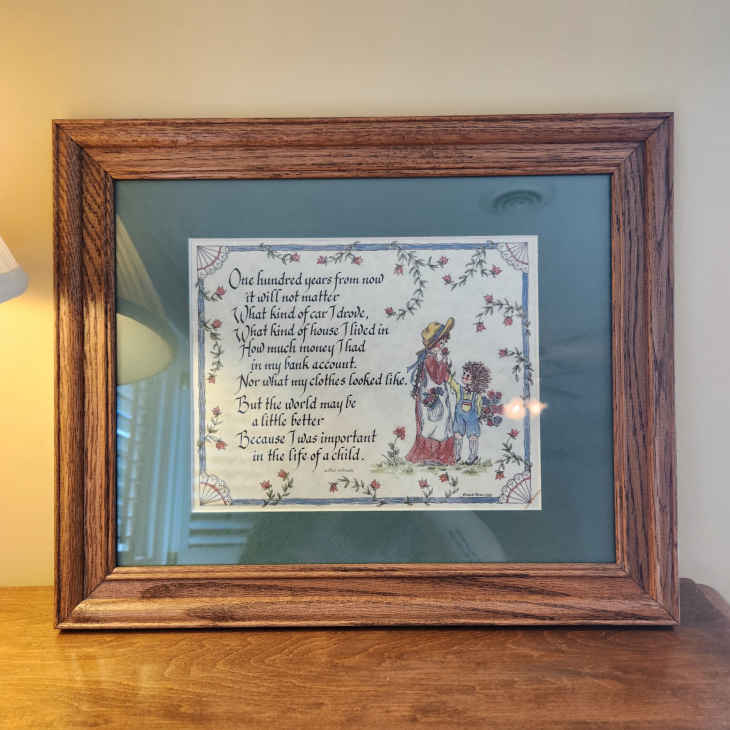 One hundred years from now
it will not matter
What kind of car I drove,
What kind of house I lived in
How much money I had
in my bank account.
Nor what my clothes looked like.
But the world may be
a little better
Because I was important
in the life of a child.